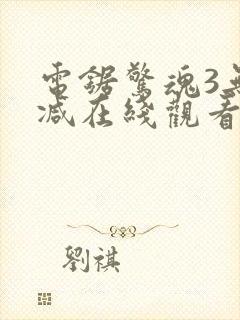 電鋸驚魂3無
減在綫觀看
劉祺